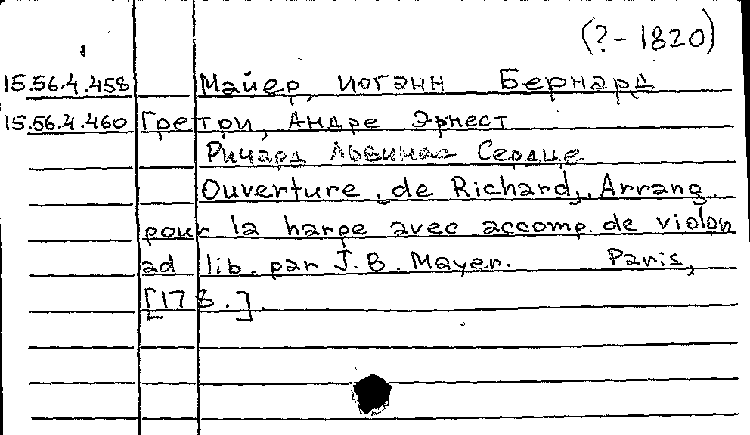 (?-1820)
15.56.4.458 Майер, Иоганн Бернард
15.56.4.460 Гретри, Андре Эрнест
Ричард Львиное Сердце
Ouverture „de Richard„. Arrang.
pour la harpe avec accomp. de violon
ad lib. par J. B. Mayer. Paris,
[178.].